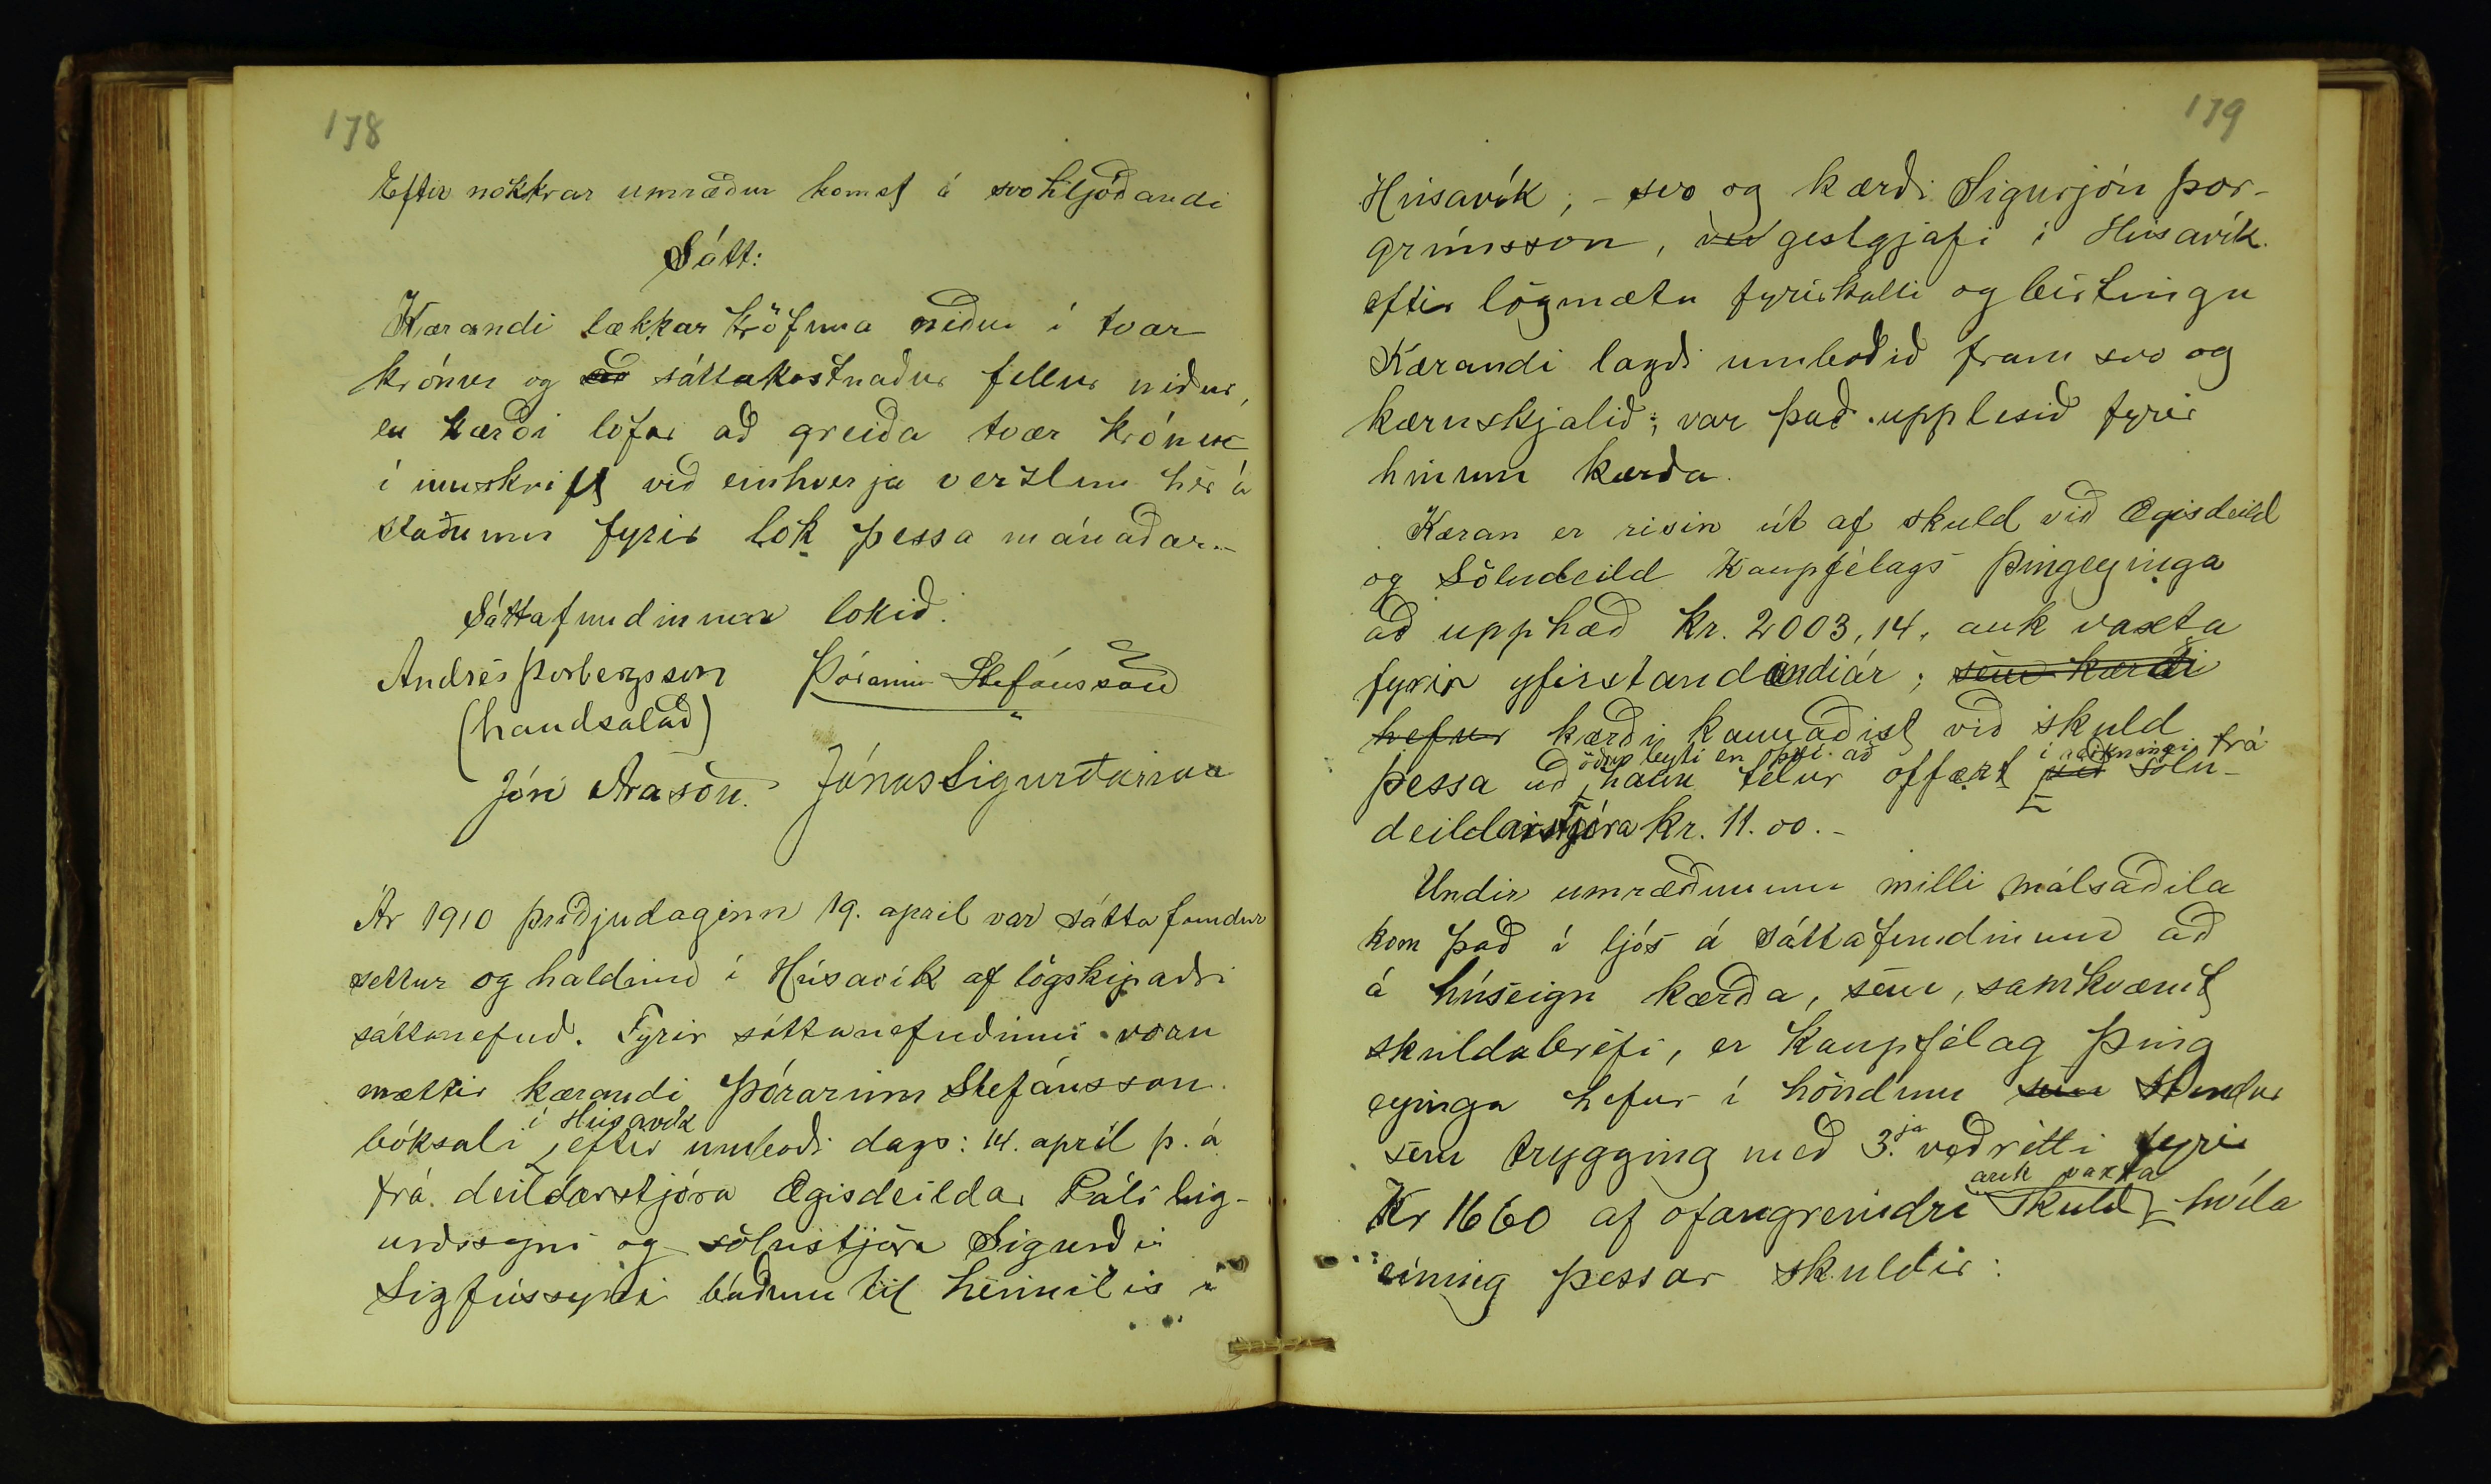 178
Eftir nokkrar umræður komst á svohljóðandi
Sátt:
Kærandi lækkar kröfuna niður í tvær
krónur og sáttakostnaður fellur niður,
en kærði lofar að greiða tvær krónur
í innskrift við einhverja verzlun hér á
staðnum fyrir lok þessa mánaðar.-
Sáttafundinum lokið.
Andrés Þorbergsson Þórarinn Stefánsson
(handsalað)
Jón Arason. Jónas Sigurðsson
Ár 1910 þriðjudaginn 19. apríl var sáttafundur
settur og haldinn í Húsavík af lögskipaðri
sáttanefnd. Fyrir sáttanefndinni voru
mættir kærandi Þórarinn Stefánsson
í Húsavík
bóksali, eftir umboði dags: 14. apríl þ. á
frá deildarstjóra Ægisdeildar Páli Sig-
urðssyni og sölustjóra Sigurði
Sigfússyni báðum til heimilis í
179
Húsavík, - svo og kærði Sigurjón Þor-
grímsson, gestgjafi í Húsavík.
eftir lögmætu fyrirkalli og birtingu
Kærandi lagði umboðið fram svo og
kæruskjalið; var það upplesið fyrir
hinum kærða.
Kæran er risin út af skuld við Ægisdeild
og Söludeild Kaupfélags Þingeyinga
að upphæð kr. 2003,14, auk vaxta
fyrir yfirstandandi ár; sem kærði
hefur kærði kannaðist við skuld
öðru leyti en því að í reikningi frá
þessa að hann telur offært við sölu-
deildarstjóra kr. 11.00.-
Undir umræðunum milli málsaðila
kom það í ljós á sáttafundinum að
á húseign kærða, sem, samkvæmt
skuldabréfi, er Kaupfélag Þing
eyinga hefur í höndum sem stendur
sem trygging með 3.ja veðrétti fyrir
auk vaxta
Kr 1660 af ofangreindri skuld, hvíla
einnig þessar skuldir: